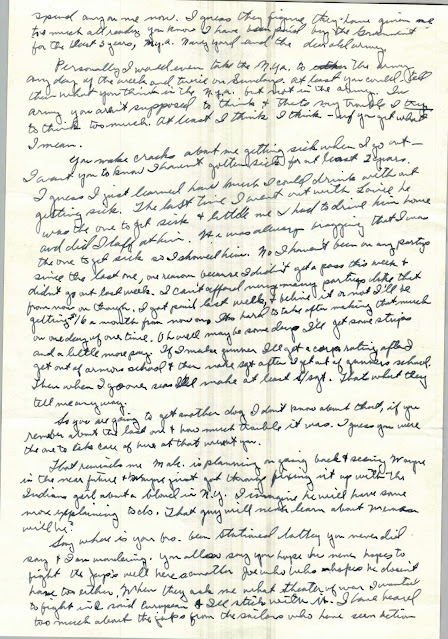 spend any on me now. I guess they figure they have given me
too much already you know I have been paid by the Government
for the last 3 years, N.y.a. Navy yard and the dad old army.
Personally I would even take the N.y.a. to the army
any day of the week and twice on Sundays, at least you could tell
them what you think in the N.y.a. but not in the army. In
army you aren't supposed to think & thats my trouble I try
to think too much. At least I think I think - if you get what
I mean.
You make cracks about me getting sick when I go out -
I want you to know I haven't gotten sick for at least 2 years.
I guess I just learned how much I could drink with out
getting sick. The last time I went out with Louie he
was the one to get sick & little me had to drive him home
and did I laff at him. He was always bragging that I was
the one to get sick so I showed him. No I haven't been on any partys
since the last one, one reason because I didn't get a pass this week &
didn't go out last week. I can't afford many partys like that
from now on though. I get paid last week, & believe it or not I'll be
getting a month from now on. Its hard to take after making that much
on one day of over time. Oh well maybe some day I'll get some strips
and a little more pay. If I make gunner I'll get a corp rating after I
get out of armors school & then make sgt after I get out of gunners school.
Then when I go over seas I'll make at least S/sgt. That what they
tell me any way.
So you are going to get another dog I don't know about that, if you
remember about the last one & how much trouble it was. I guess you were
the one to take care of her at that weren't you.
That reminds me Mac. is planning on going back & seeing Wayne
in the near future & Wayne just got through fixing it up with the
Indiana girl about a blond in N.y. I imagine he will have some
more explaining to do. That guy will never learn about women
will he?
Say where is your bro. been stationed lattey you never did
say & I am wondering. you also say you hope he never hopes to
fight the Jap's well here is another Joe who who hopes he doesn't
have to either. When they ask me what theater of war I wanted
to fight in I said European & I'll stick with it. I have heard
too much about the Japs from the sailors who have seen action